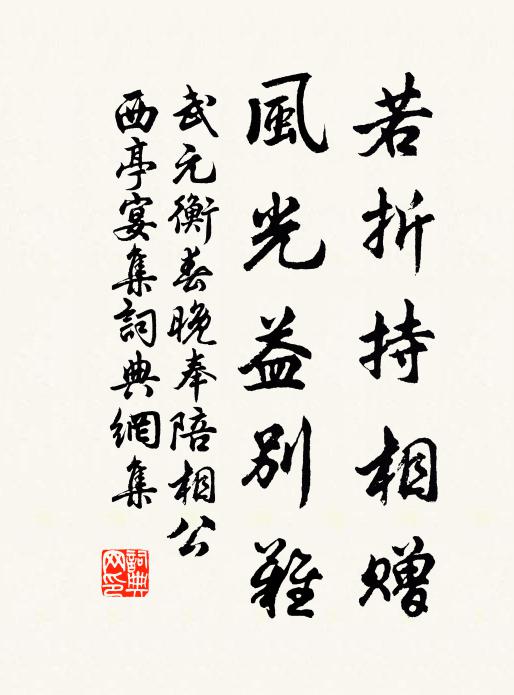 若折持相贈
風光益別難
武元衡春晚奉陪相公
西亭宴集詞典網集
詞典網印